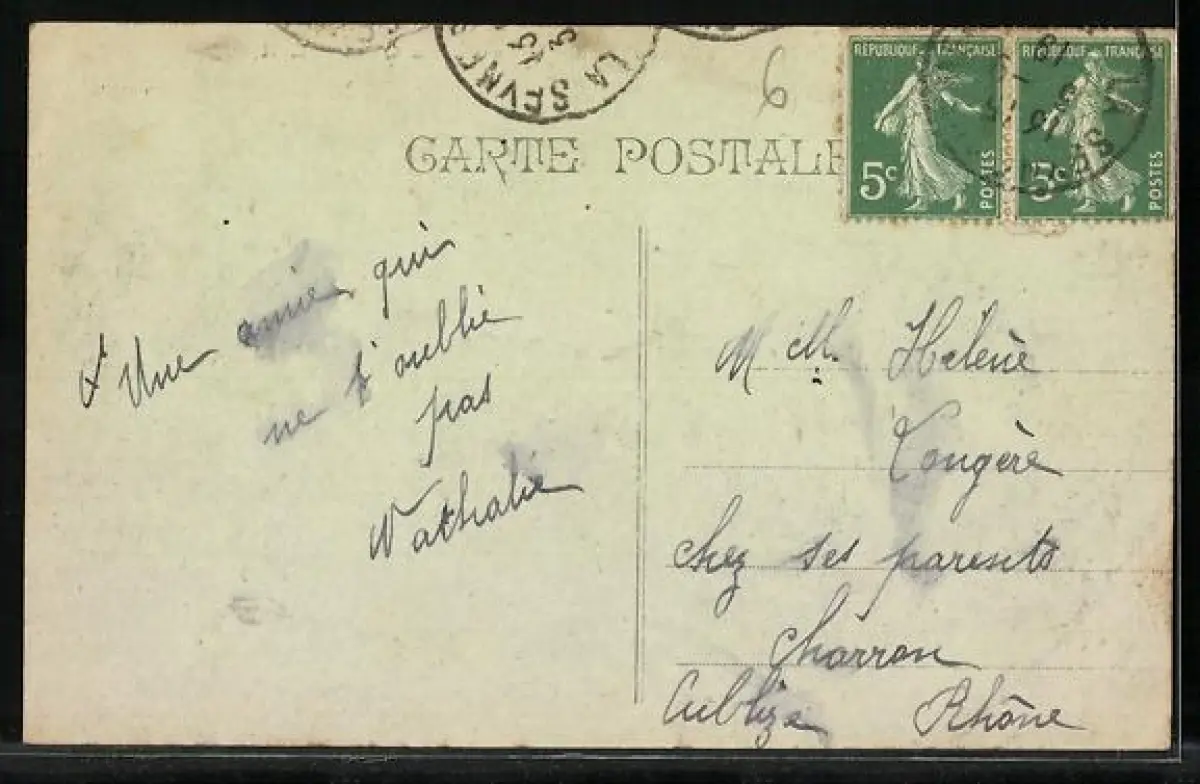 LA SEYNE
13
3
6
REPUBLIQUE FRANÇAISE
5c
POSTES
REPUBLIQUE FRANÇAISE
5c
POSTES
CARTE POSTALE
Une amie qui
ne t'oublie
pas
Nathalie
Melle Hélène
Tougère
chez ses parents
Charron
Rhône